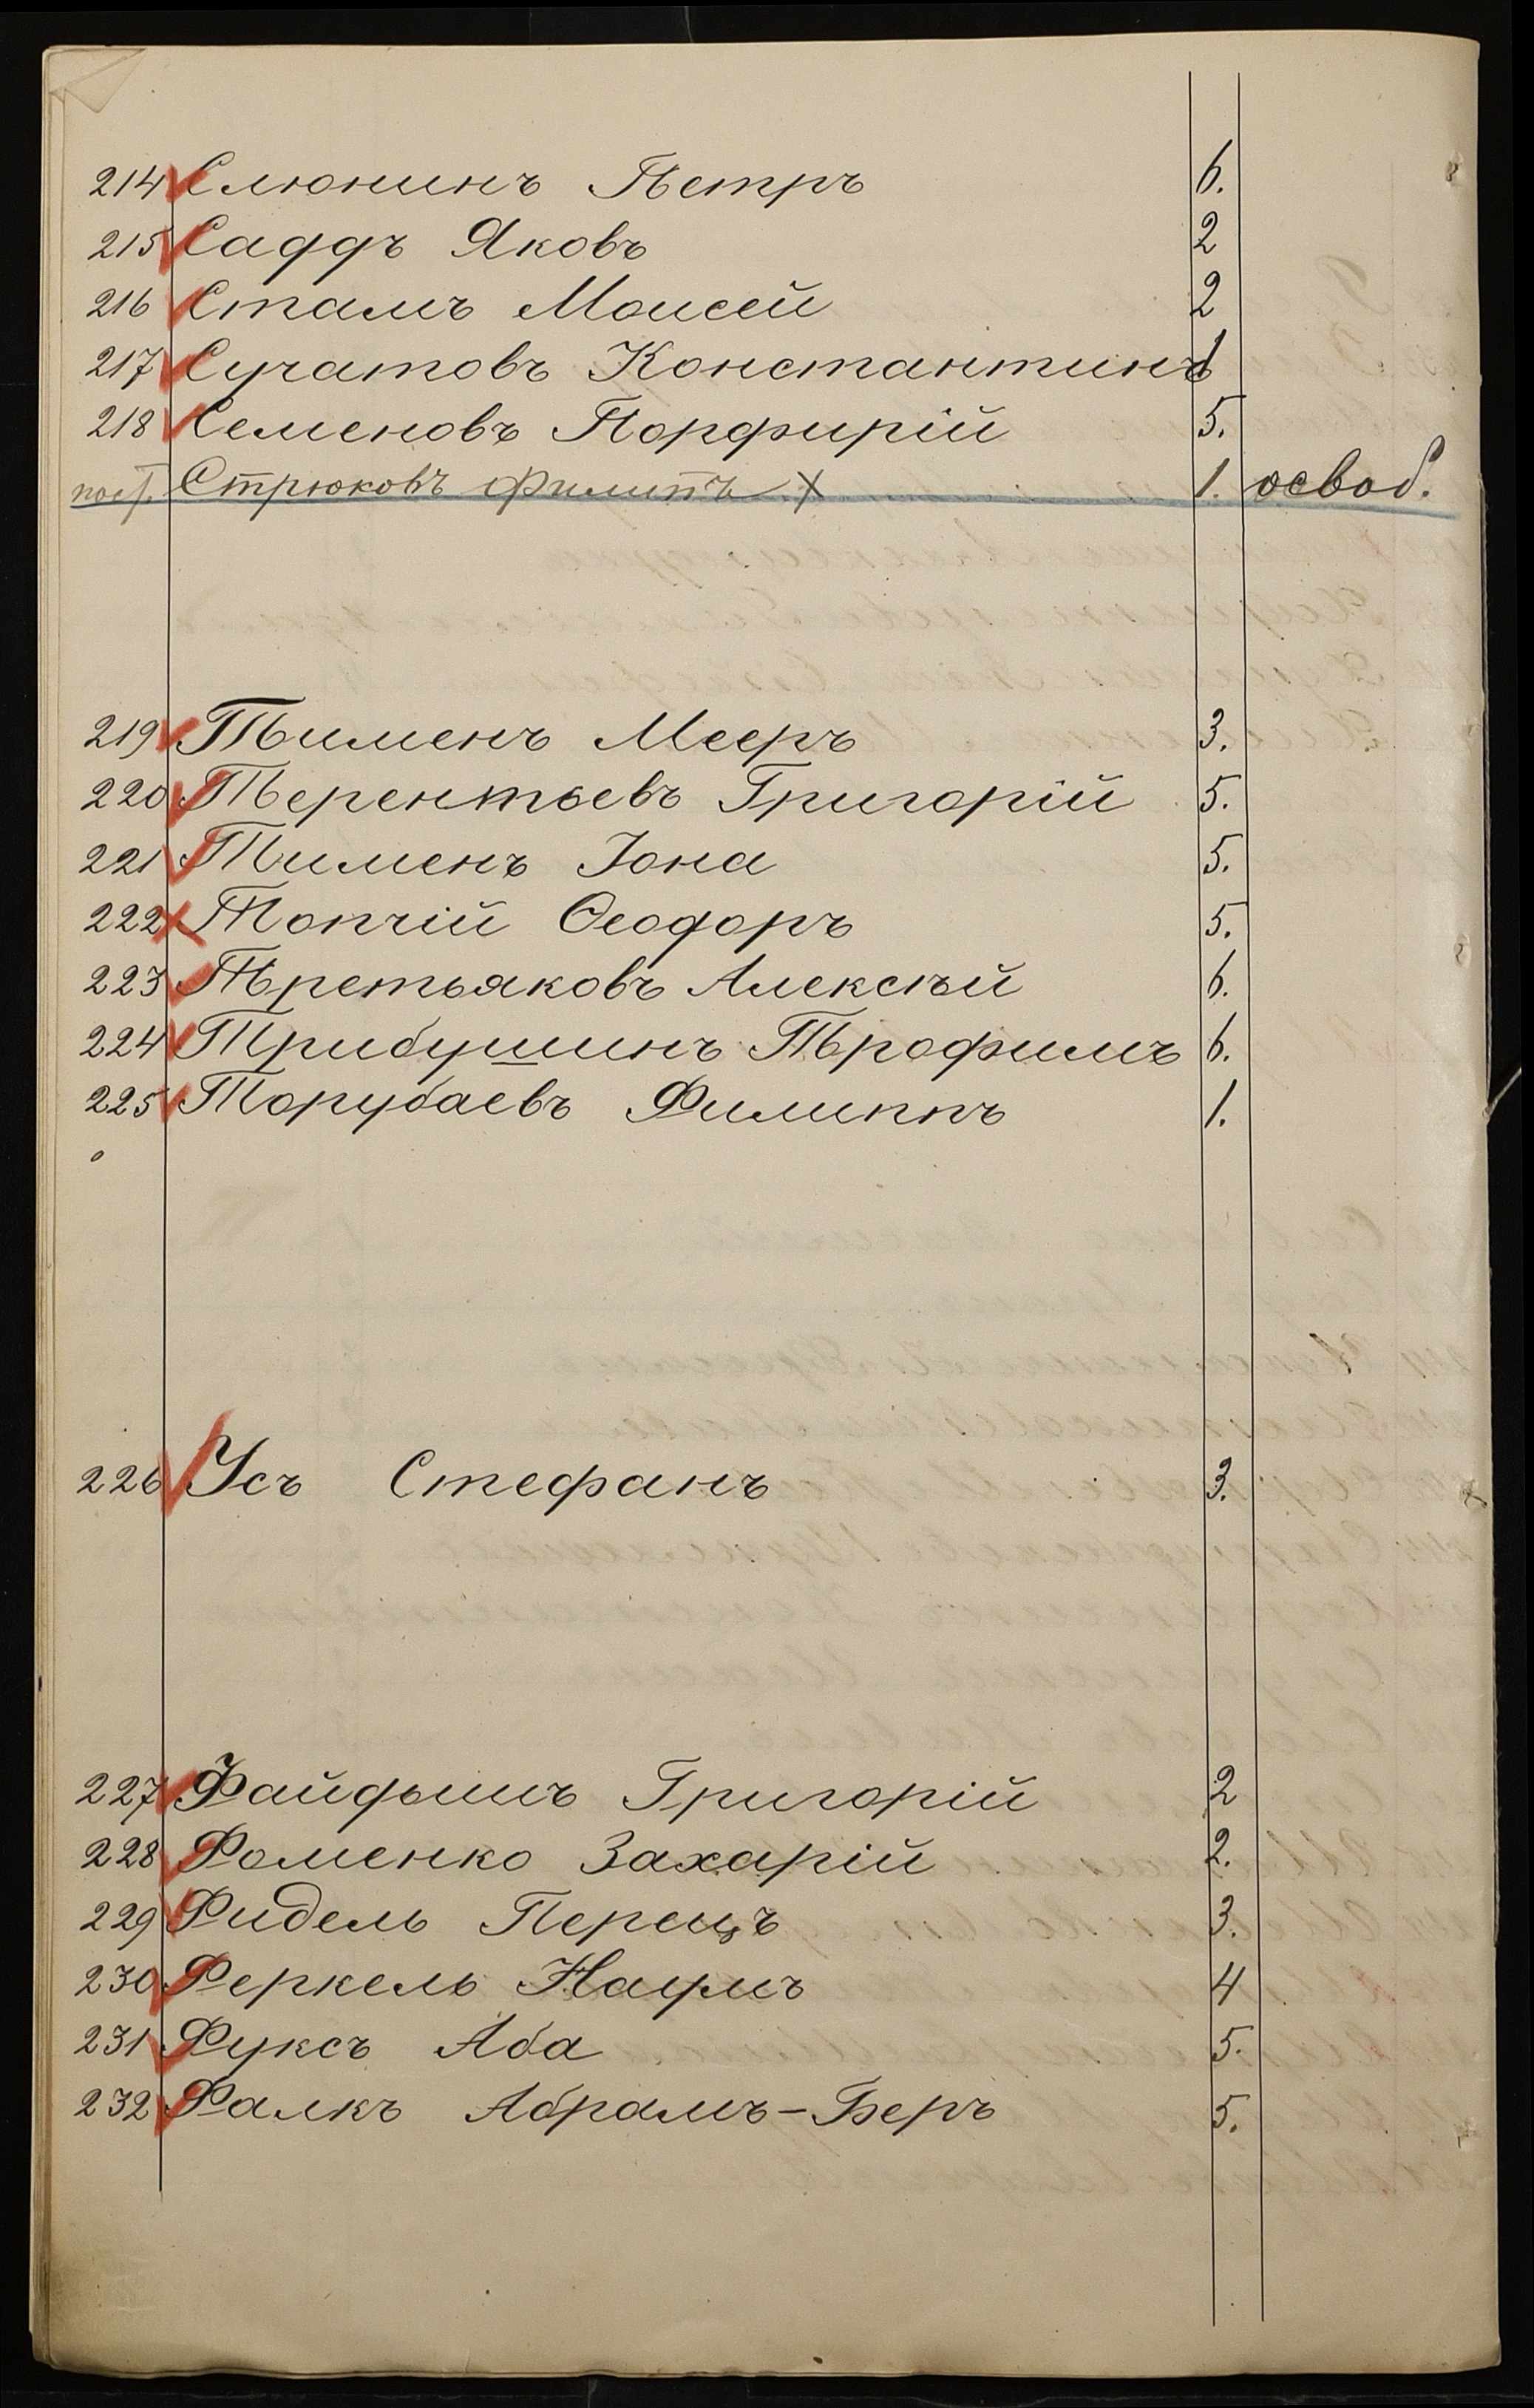 214 Слюнинъ Петръ 6.
215 Саддъ Яковъ 2
216 Сталь Моисей 2
217 Сучатовъ Константинъ 1
218 Семеновъ Порфирій 5.
Стрюковъ Филипъ X 1. освоб.
219 Тименъ Мееръ 3.
220 Терентьевъ Григорій 5.
221 Тименъ Іона 5.
222 Топчій Ѳеодоръ 5.
223 Третьяковъ Алексѣй 6.
224 Трибушинъ Трофимъ 6.
225 Торубаевъ Филиппъ 1.
226 Усъ Стефанъ 3.
227 Файдышъ Григорій 2
228 Фоменко Захарій 2.
229 Фидель Перецъ 3.
230 Феркель Наумъ 4
231 Фуксъ Аба 5.
232 Фалкъ Абрамъ-Беръ 5.